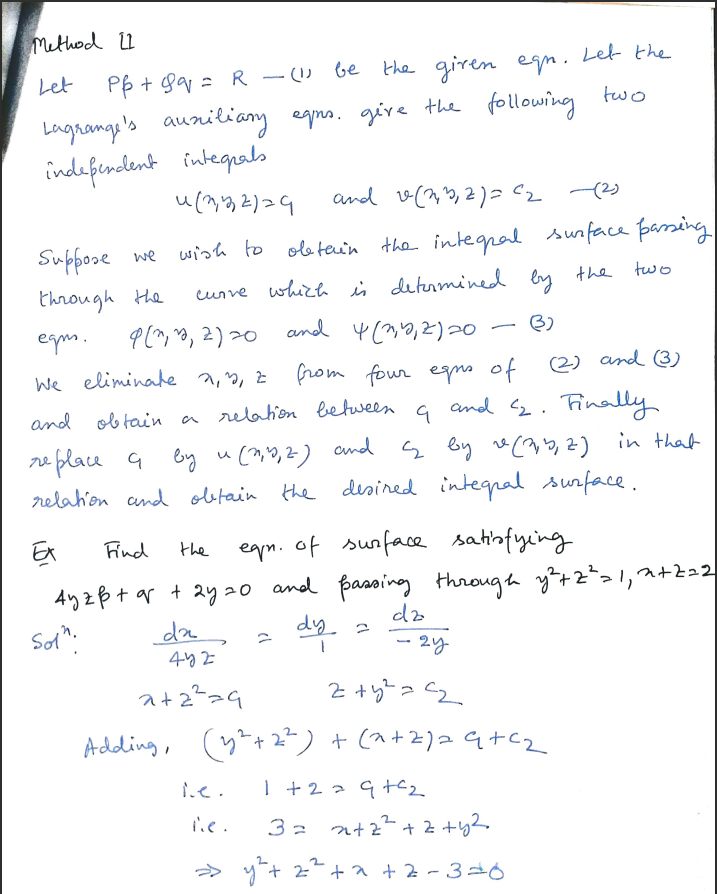 Method II
Let Pp + Qq = R — (1) be the given eqn. Let the
Lagrange's auxiliary eqns. give the following two
independent integrals
u(x,y,z) = c₁ and v(x,y,z) = c₂ — (2)
Suppose we wish to obtain the integral surface passing
through the curve which is determined by the two
eqns. φ(x,y,z) = 0 and ψ(x,y,z) = 0 — (3)
We eliminate x, y, z from four eqns of (2) and (3)
and obtain a relation between c₁ and c₂. Finally
replace c₁ by u(x,y,z) and c₂ by v(x,y,z) in that
relation and obtain the desired integral surface.
Ex Find the eqn. of surface satisfying
4yzp + q + 2y = 0 and passing through y² + z² = 1, x + z = 2
Solⁿ: dx/4yz = dy/1 = dz/-2y
x + z² = c₁ z + y² = c₂
Adding, (y² + z²) + (x + z) = c₁ + c₂
i.e. 1 + 2 = c₁ + c₂
i.e. 3 = x + z² + z + y²
⇒ y² + z² + x + z - 3 = 0